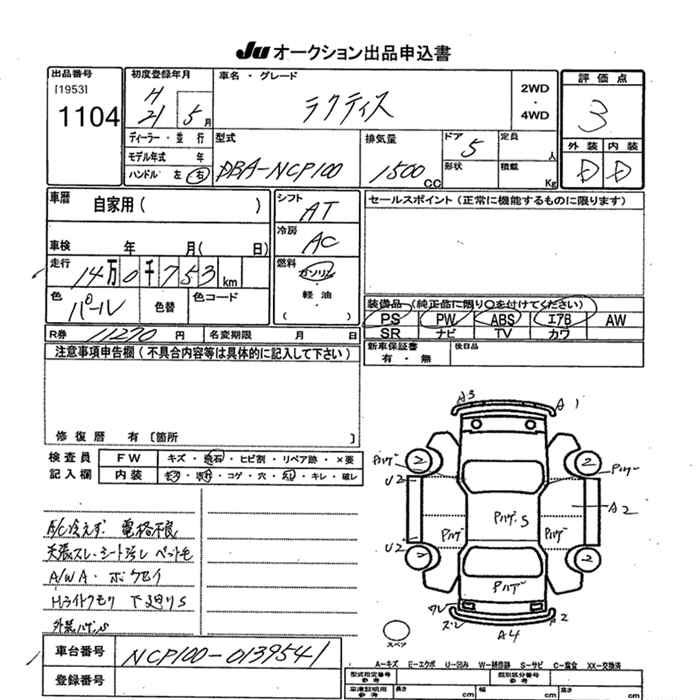 Ju オークション出品申込書
出品番号
[1953]
1104
初度登録年月
H 21 5月
車名・グレード
ラクティス
2WD
・
4WD
評価点
3
外装 内装
D D
ディーラー・並行
モデル年式 年
ハンドル 左 右
型式
DBA-NCP100
排気量
1500 cc
ドア 5
形状
定員 人
積載 Kg
車歴 自家用( )
車検 年 月( 日)
走行 14万0千753km
色 パール
色替
色コード
シフト
AT
冷房
AC
燃料
ガソリン
・
軽油
( )
セールスポイント(正常に機能するものに限ります)
装備品(純正品に限り○を付けてください)
PS PW ABS エアB AW
SR ナビ TV カワ
新車保証書
有・無
後日品
R券 11270円 名変期限 月 日
注意事項申告欄(不具合内容等は具体的に記入して下さい)
修復歴 有 [箇所 ]
検査員
記入欄
FW キズ・飛石・ヒビ割・リペア跡・×要
内装 ・コゲ・穴・・キレ・破レ
A/C冷えず 電格不良
天張スレ・シート汚レ ペット毛
A/WA・ボケセイ
Hライトクモリ 下廻りS
外装ハゲ
車台番号 NCP100-0139541
登録番号
A3 A1
ハゲ 2 2 ハゲ
U2 A2
ハゲS
ハゲ ハゲ
U2 2 2
ハゲ
ワレ
ズレ A4 A2
スペア
A-キズ E-エクボ U-凹み W-補修跡 S-サビ C-腐食 XX-交換済
型式指定番号
参考
類別区分番号
参考
車庫証明用
参考
長さ cm 幅 cm 高さ cm